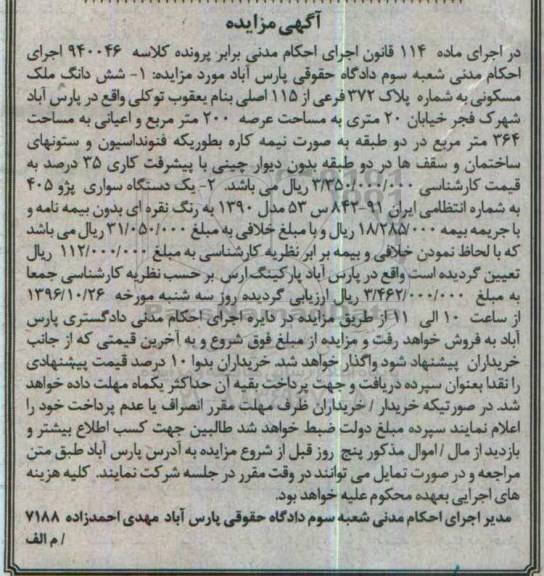 آگهی مزایده
در اجرای ماده ۱۱۴ قانون اجرای احکام مدنی برابر پرونده کلاسه ۹۴۰۰۴۶ اجرای
احکام مدنی شعبه سوم دادگاه حقوقی پارس آباد مورد مزایده: ۱- شش دانگ ملک
مسکونی به شماره پلاک ۳۷۲ فرعی از ۱۱۵ اصلی بنام یعقوب توکلی واقع در پارس آباد
شهرک فجر خیابان ۲۰ متری به مساحت عرصه ۲۰۰ متر مربع و اعیانی به مساحت
۳۶۴ متر مربع در دو طبقه به صورت نیمه کاره بطوریکه فنونداسیون و ستونهای
ساختمان و سقف ها در دو طبقه بدون دیوار چینی با پیشرفت کاری ۳۵ درصد به
قیمت کارشناسی ۳/۳۵۰/۰۰۰/۰۰۰ ریال می باشد. ۲- یک دستگاه سواری پژو ۴۰۵
به شماره انتظامی ایران ۹۱-۸۴۲ س ۵۳ مدل ۱۳۹۰ به رنگ نقره ای بدون بیمه نامه و
با جریمه بیمه ۱۸/۲۸۵/۰۰۰ ریال و با مبلغ خلافی به مبلغ ۳۱/۰۵۰/۰۰۰ ریال می باشد
که با لحاظ نمودن خلافی و بیمه بر ابر نظریه کارشناسی به مبلغ ۱۱۲/۰۰۰/۰۰۰ ریال
تعیین گردیده است واقع در پارس آباد پارکینگ ارس بر حسب نظریه کارشناسی جمعا
به مبلغ ۳/۴۶۲/۰۰۰/۰۰۰ ریال ارزیابی گردیده روز سه شنبه مورخه ۱۳۹۶/۱۰/۲۶
از ساعت ۱۰ الی ۱۱ از طریق مزایده در دایره اجرای احکام مدنی دادگستری پارس
آباد به فروش خواهد رفت و مزایده از مبلغ فوق شروع و به آخرین قیمتی که از جانب
خریداران پیشنهاد شود واگذار خواهد شد. خریداران بدوا ۱۰ درصد قیمت پیشنهادی
را نقدا بعنوان سپرده دریافت و جهت پرداخت بقیه آن حداکثر یکماه مهلت داده خواهد
شد. در صورتیکه خریدار / خریداران ظرف مهلت مقرر انصراف یا عدم پرداخت خود را
اعلام نمایند سپرده مبلغ دولت ضبط خواهد شد طالبین جهت کسب اطلاع بیشتر و
بازدید از مال / اموال مذکور پنج روز قبل از شروع مزایده به آدرس پارس آباد طبق متن
مراجعه و در صورت تمایل می توانند در وقت مقرر در جلسه شرکت نمایند. کلیه هزینه
های اجرایی بعهده محکوم علیه خواهد بود.
مدیر اجرای احکام مدنی شعبه سوم دادگاه حقوقی پارس آباد مهدی احمدزاده ۷۱۸۸
/ م الف